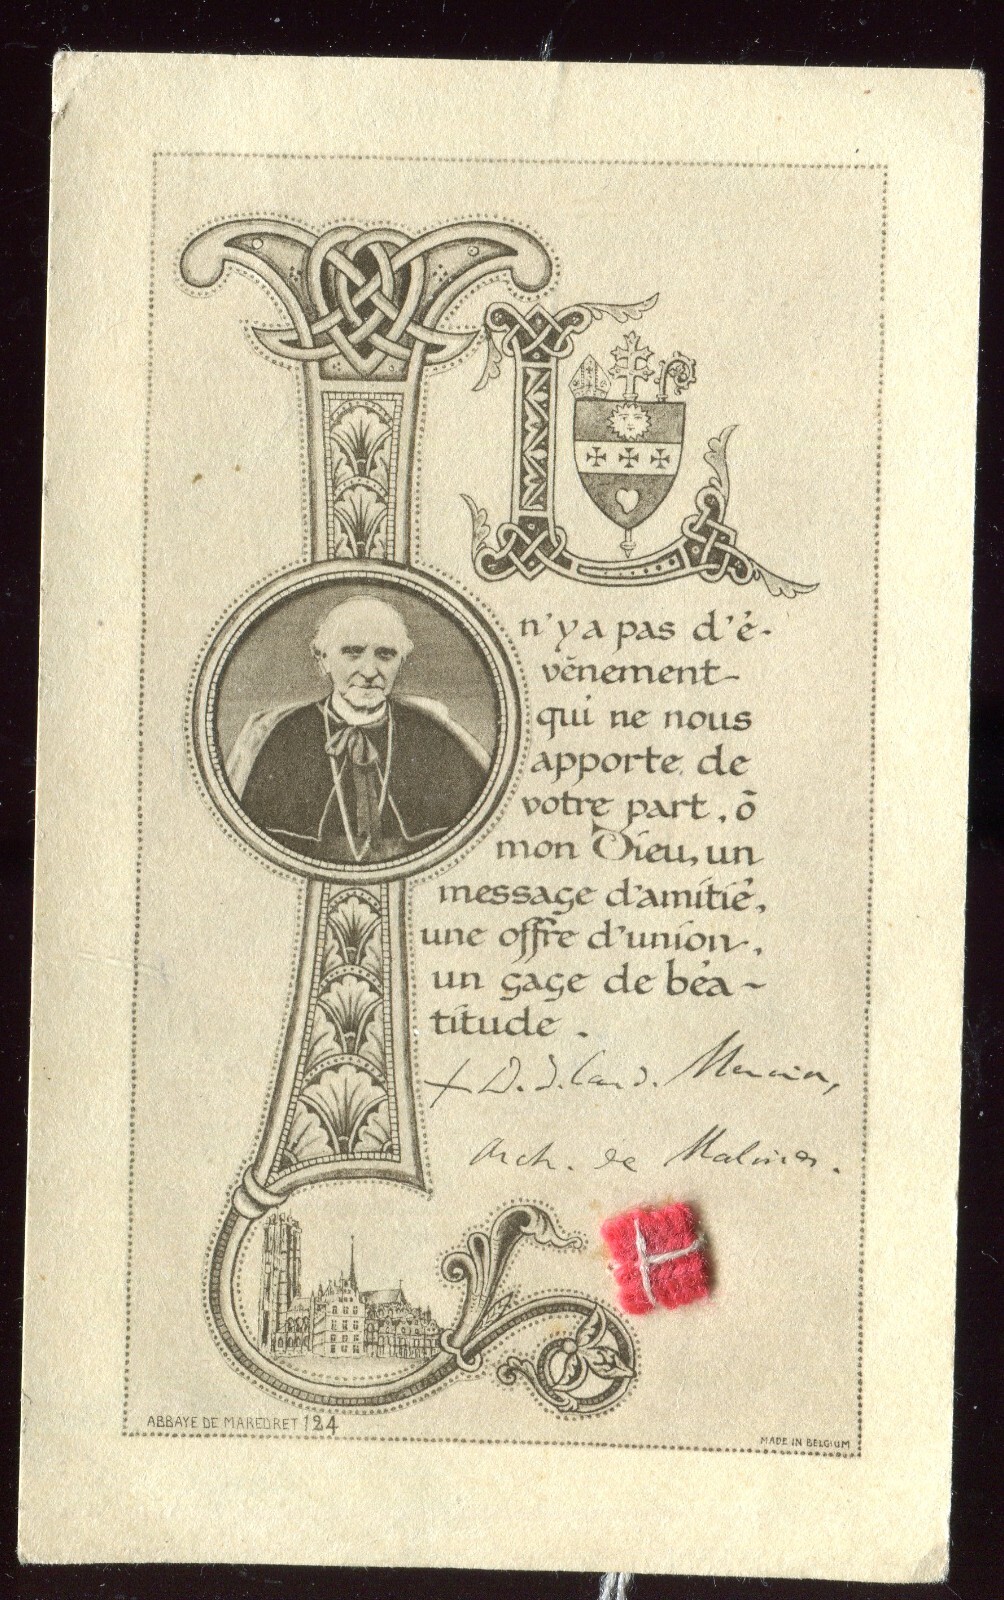 IL
n'y a pas d'é-
vènement
qui ne nous
apporte de
votre part, ô
mon Dieu, un
message d'amitié,
une offre d'union,
un gage de béa-
titude.
+ D. J. Card. Mercier,
Arch. de Malines.
ABBAYE DE MAREDRET 124
MADE IN BELGIUM